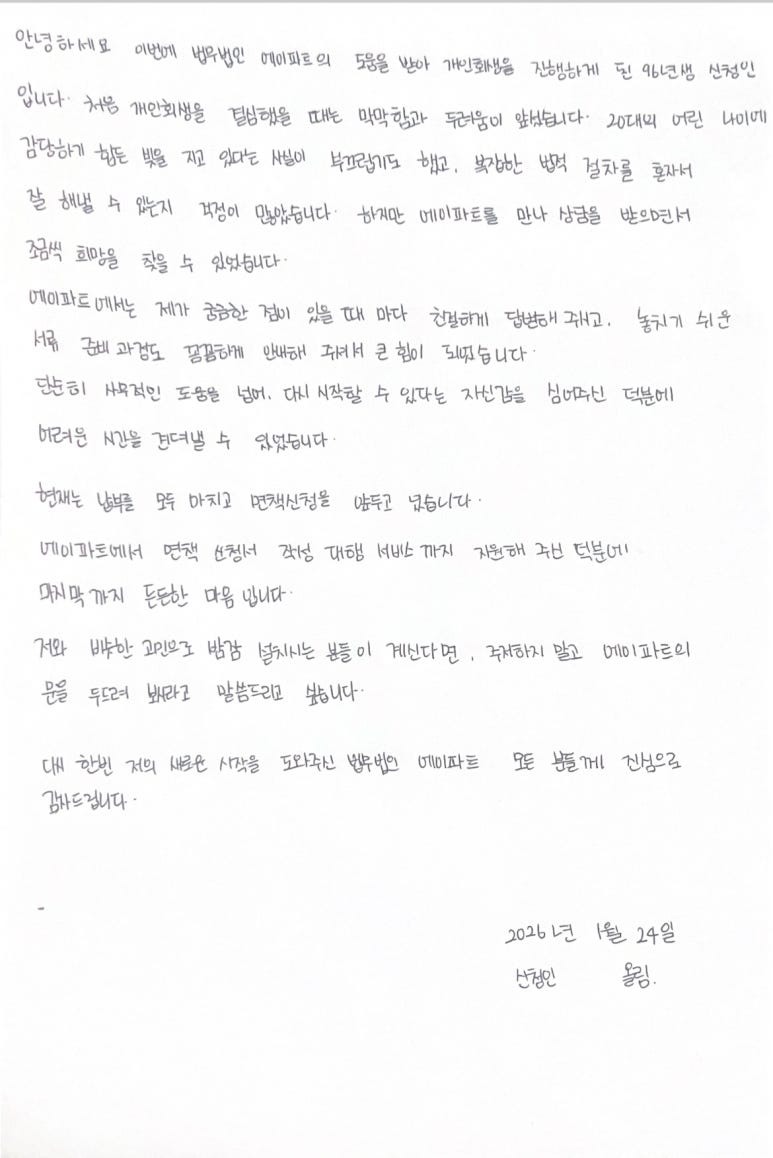 안녕하세요 이번에 법무법인 에이파트의 도움을 받아 개인회생을 진행하게 된 96년생 신청인
입니다. 처음 개인회생을 결심했을 때는 막막함과 두려움이 앞섰습니다. 20대의 어린 나이에
감당하기 힘든 빚을 지고 있다는 사실이 부끄럽기도 했고, 복잡한 법적 절차를 혼자서
잘 해낼 수 있는지 걱정이 많았습니다. 하지만 에이파트를 만나 상담을 받으면서
조금씩 희망을 찾을 수 있었습니다.
에이파트에서는 제가 궁금한 점이 있을 때 마다 친절하게 답변해 주시고, 놓치기 쉬운
서류 준비 과정도 꼼꼼하게 안내해 주셔서 큰 힘이 되었습니다.
단순히 사무적인 도움을 넘어, 다시 시작할 수 있다는 자신감을 심어주신 덕분에
어려운 시간을 견뎌낼 수 있었습니다.
현재는 납부를 모두 마치고 면책신청을 앞두고 있습니다.
에이파트에서 면책 신청서 작성 대행 서비스 까지 지원해 주신 덕분에
마지막 까지 든든한 마음 입니다.
저와 비슷한 고민으로 밤잠 설치시는 분들이 계신다면, 주저하지 말고 에이파트의
문을 두드려 보시라고 말씀드리고 싶습니다.
다시 한번 저의 새로운 시작을 도와주신 법무법인 에이파트 모든 분들께 진심으로
감사드립니다.
2026년 1월 24일
신청인 올림.